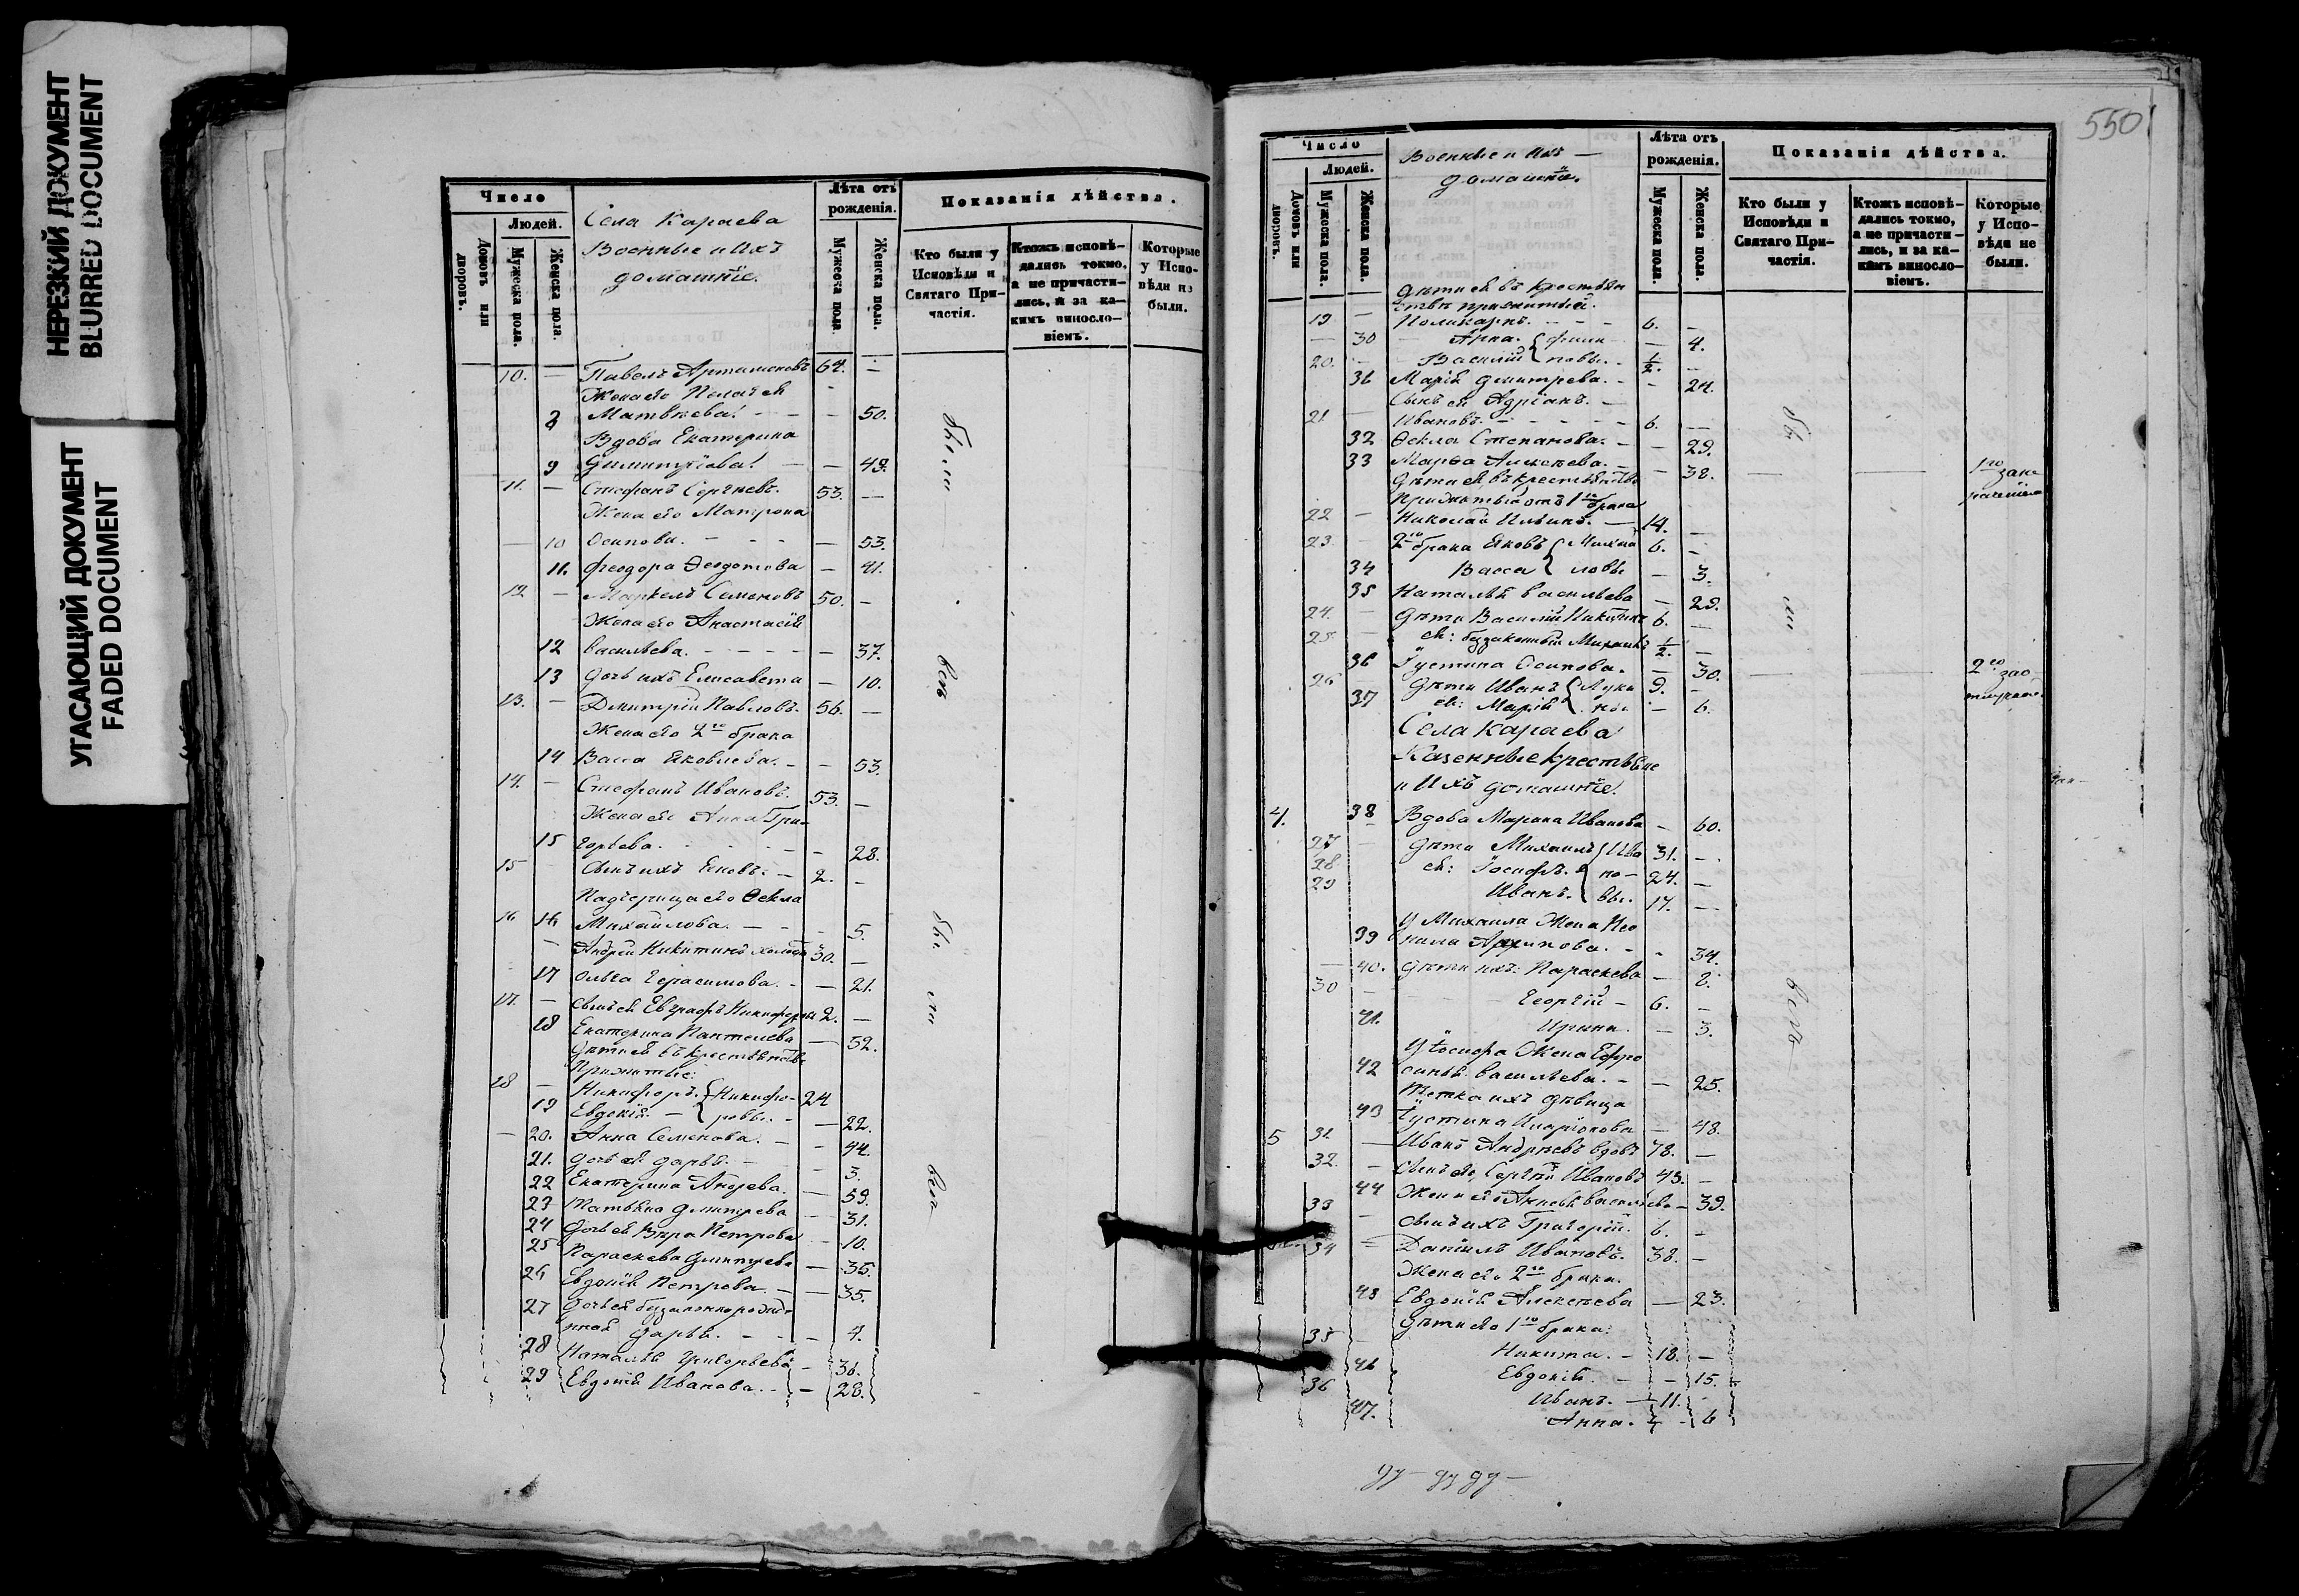 НЕРЕЗКИЙ ДОКУМЕНТ
BLURRED DOCUMENT
УГАСАЮЩИЙ ДОКУМЕНТ
FADED DOCUMENT
Число
Людей.
Домовъ или дворовъ.
Мужеска пола.
Женска пола.
Села Караева
Военные и Ихъ
домашніе.
Лѣта отъ рожденія.
Мужеска пола.
Женска пола.
Показанія дѣйства.
Кто были у Исповѣди и Святаго Причастія.
Ктожъ исповѣдались токмо, а не причастились, и за какимъ винословіемъ.
Которые у Исповѣди не были.
10. — Павелъ Артамоновъ 64. —
Жена его Пелагея
8 Матвѣева. — — 50.
Вдова Екатерина
9 Димитріева. — — 49.
11. — Стефанъ Сергѣевъ. 53. —
Жена его Матрона
— 10 Осипова. — — 53.
11. Феодора Ѳеодотова — 41.
12 — Маркелъ Семеновъ 50. —
Жена его Анастасія
12 Васильева. — — 37.
13 Дочь ихъ Елисавета — 10.
13. — Димитрій Павловъ. 56. —
Жена его 2го брака
14 Васса Яковлева. — — 53.
14. — Стефанъ Ивановъ. 53. —
Жена его Анна Гри-
15 горьева. — 28.
15 Сынъ ихъ Яковъ. — 2. —
Падчерица его Ѳекла
16 16 Михайлова. — — 5.
— Андрей Никитинъ 30. —
17 Ольга Герасимова. — — 21.
17. — Сынъ ея Евграфъ 2. —
18 Екатерина Пантелеева — 52.
Дѣти ея въ крестьянствѣ
Прижитые:
18 — Никифоръ { Никифо- 24
19 Евдокія — { ровы. — — 22.
— 20. Анна Семенова. — — 44.
21. Дочь ея Дарья. — — 3.
22 Екатерина Андреева. — 59.
23 Татьяна Дмитрева — 31.
24 Дочь ея Вѣра Петрова — 10.
25 Параскева Дмитрева — 35.
26 Евдокія Петрова. — — 35.
27 Дочь ея
Дарья. — — 7.
28 Наталья Григорьева — 36.
29 Евдокія Ивановa. — — 28.
были
всѣ
бы
ли
всѣ
550
Число
Людей.
Домовъ или дворовъ.
Мужеска пола.
Женска пола.
Военные и Ихъ —
домашніе.
Лѣта отъ рожденія.
Мужеска пола.
Женска пола.
Показанія дѣйства.
Кто были у Исповѣди и Святаго Причастія.
Ктожъ исповѣдались токмо, а не причастились, и за какимъ винословіемъ.
Которые у Исповѣди не были.
Дѣти ея въ крестьян
ствѣ прижитыя.
19 — Поликарпъ. — — 6. —
— 30 Анна. { Фили — 4.
20. — Василій { повы. — 1/2. —
31 Марія Дмитрева. — — 24.
Сынъ ея Адріанъ. —
21 — Ивановъ. — — 6. —
32 Ѳекла Степанова. — — 29.
33 Марѳа Алексѣева. — — 38.
Дѣти ея въ крестьянствѣ
Прижитыя отъ 1го брака
22 — Николай Ильинъ. — 14. —
23 — 2го брака Яковъ { Михай 6. —
34 Васса { ловы — 3.
35 Наталья Васильева — 29.
24. — Дѣти Василій Никитинъ 6. —
25 — ея: 1/2. —
36 Іустина Осипова. — 30.
26 — Дѣти Иванъ { Луки 9. —
37 ея: Марія { ны — 6.
Села Караева
Казенные крестьяне
и Ихъ домашніе.
4. 38 Вдова Марина Иванова — 60.
27 — Дѣти Михаилъ { Ива 31. —
28 ея: Іосифъ. { но — 24. —
29 Иванъ. { вы. 17. —
У Михаила Жена Нео
39 нила Архипова. — — 34.
— 40. Дѣти ихъ: Параскева — 8.
30 — Георгій — 6. —
41. Ирина. — — 3.
У Іосифа Жена Ефро
42 синья Васильева. — — 25.
Тетка ихъ дѣвица
43 Іустина Иларіонова — 48.
5 31 — Иванъ Андреевъ вдовъ 78. —
32. — Сынъ его Сергѣй Ивановъ 43. —
44 Жена его — 39.
33 — Сынъ ихъ Григорій. 6. —
34 — Даніилъ Ивановъ. 38. —
Жена его 2го брака.
45 Евдокія Алексѣева — 23.
Дѣти его 1го брака:
35 — Никита. — 18. —
46 Евдокія. — — 15.
36 Иванъ. — 11.
47. Анна. — 6
бы
ли
всѣ
1го
2го